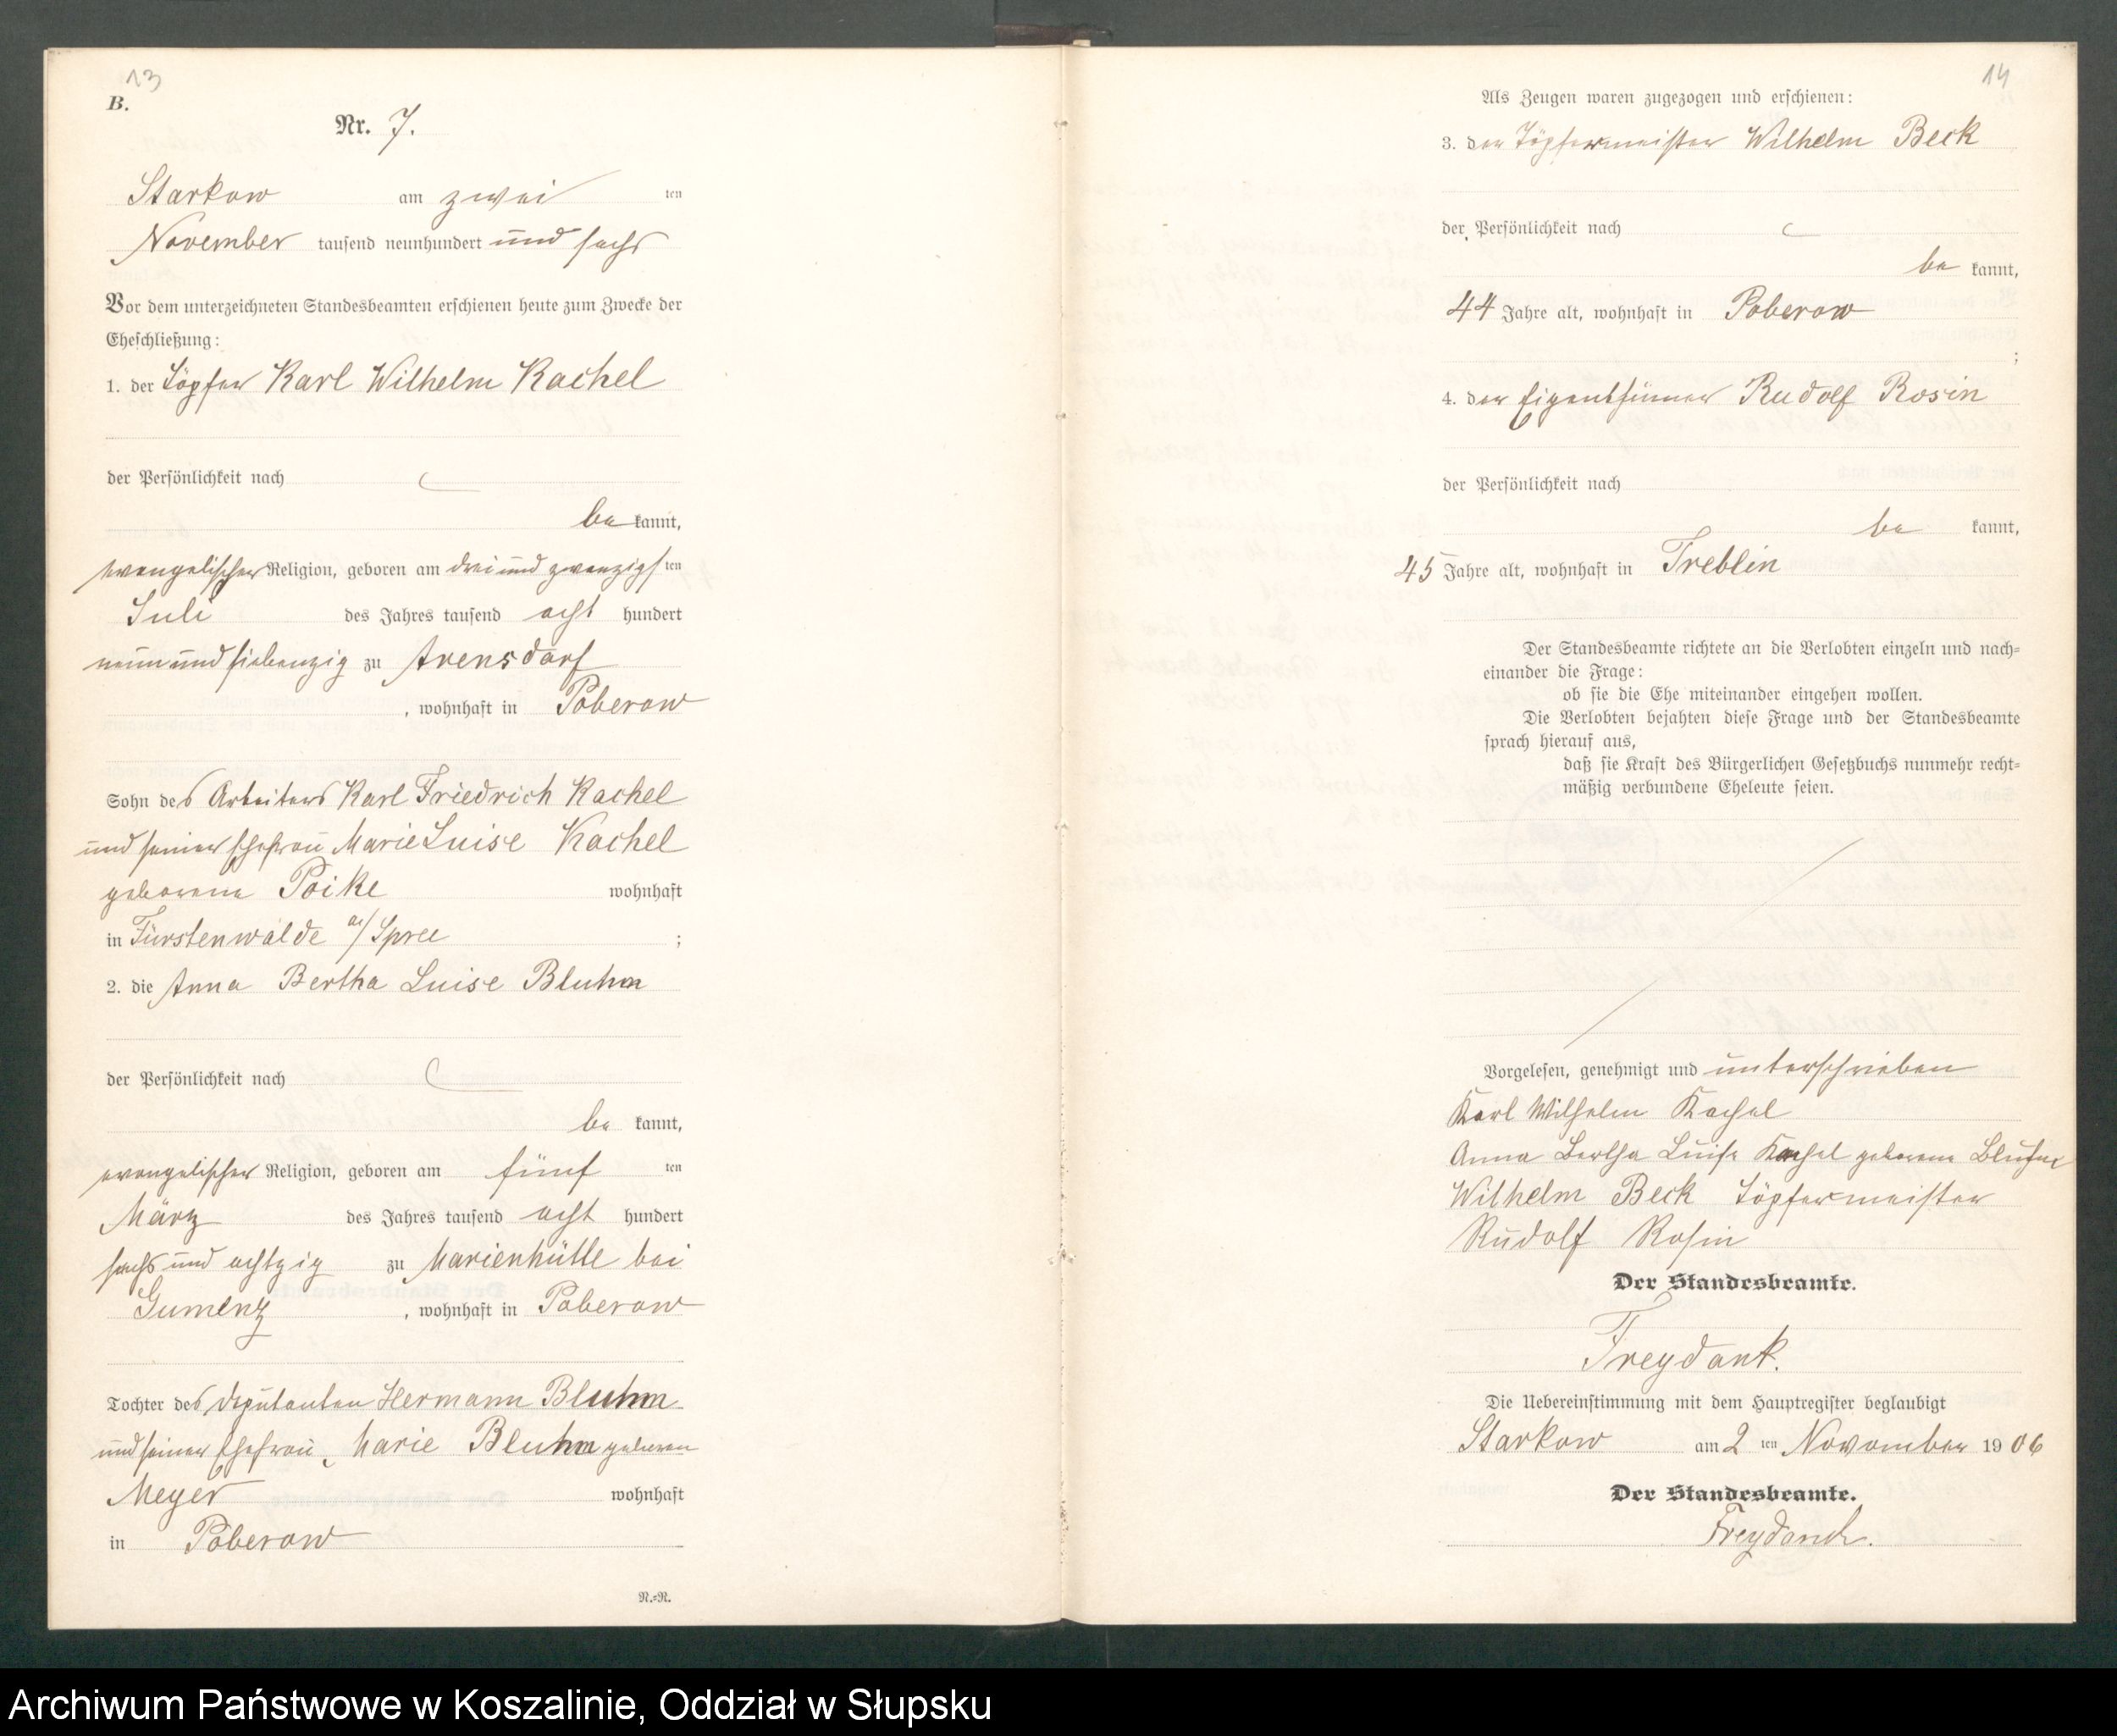 13
B.
Nr. 7.
Starkow am zwei ten
November tausend neunhundert und sechs
Vor dem unterzeichneten Standesbeamten erschienen heute zum Zwecke der
Eheschließung:
1. der Töpfer Karl Wilhelm Kachel
der Persönlichkeit nach
be kannt,
evangelischer Religion, geboren am drei und zwanzigs ten
Juli des Jahres tausend acht hundert
neun und siebenzig zu Arensdorf
, wohnhaft in Poberow
Sohn des Arbeiters Karl Friedrich Kachel
und seiner Ehefrau Marie Luise Kachel
geborene Poike wohnhaft
in Fürstenwalde a/Spree ;
2. die Anna Bertha Luise Bluhm
der Persönlichkeit nach
be kannt,
evangelischer Religion, geboren am fünf ten
März des Jahres tausend acht hundert
sechs und achtzig zu Marienhütte bei
Gumenz , wohnhaft in Poberow
Tochter des Deputanten Hermann Bluhm
und seiner Ehefrau, Marie Bluhm geboren
Meyer wohnhaft
in Poberow
N.=N.
14
Als Zeugen waren zugezogen und erschienen:
3. der Töpfermeister Wilhelm Beck
der Persönlichkeit nach
be kannt,
44 Jahre alt, wohnhaft in Poberow
;
4. der Eigenthümer Rudolf Rosin
der Persönlichkeit nach
be kannt,
45 Jahre alt, wohnhaft in Treblin
Der Standesbeamte richtete an die Verlobten einzeln und nach=
einander die Frage:
ob sie die Ehe miteinander eingehen wollen.
Die Verlobten bejahten diese Frage und der Standesbeamte
sprach hierauf aus,
daß sie Kraft des Bürgerlichen Gesetzbuchs nunmehr recht=
mäßig verbundene Eheleute seien.
Vorgelesen, genehmigt und unterschrieben
Karl Wilhelm Kachel
Anna Bertha Luise Kachel geborene Bluhm
Wilhelm Beck Töpfermeister
Rudolf Rosin
Der Standesbeamte.
Freydank.
Die Uebereinstimmung mit dem Hauptregister beglaubigt
Starkow am 2 ten November 19 06
Der Standesbeamte.
Freydank.
Archiwum Państwowe w Koszalinie, Oddział w Słupsku